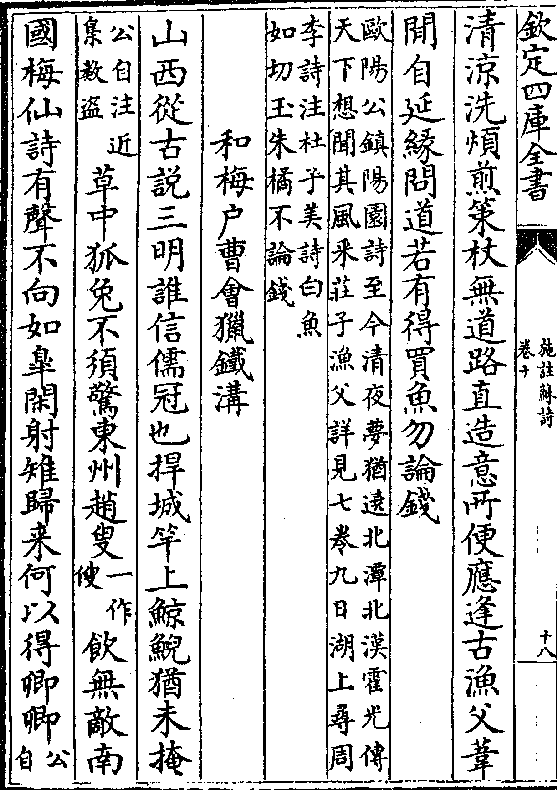 欽定四庫全書
施註蘇詩
卷十
十八
清涼洗煩煎策杖無道路直造意所便應逢古漁父葦
間自延緣問道若有得買魚勿論錢
歐陽公鎮陽園詩至今清夜夢猶遶北潭北漢霍光傳
天下想聞其風采莊子漁父詳見七卷九日湖上尋周
李詩注杜子美詩白魚
如切玉朱橘不論錢
和梅户曹會獵鐵溝
山西從古説三明誰信儒冠也捍城竿上鯨鯢猶未掩
公自注近
梟数盗
草中狐兎不須驚東州趙叟
一作
傁
飲無敵南
國梅仙詩有聲不向如臯閑射雉歸来何以得卿卿
公
自